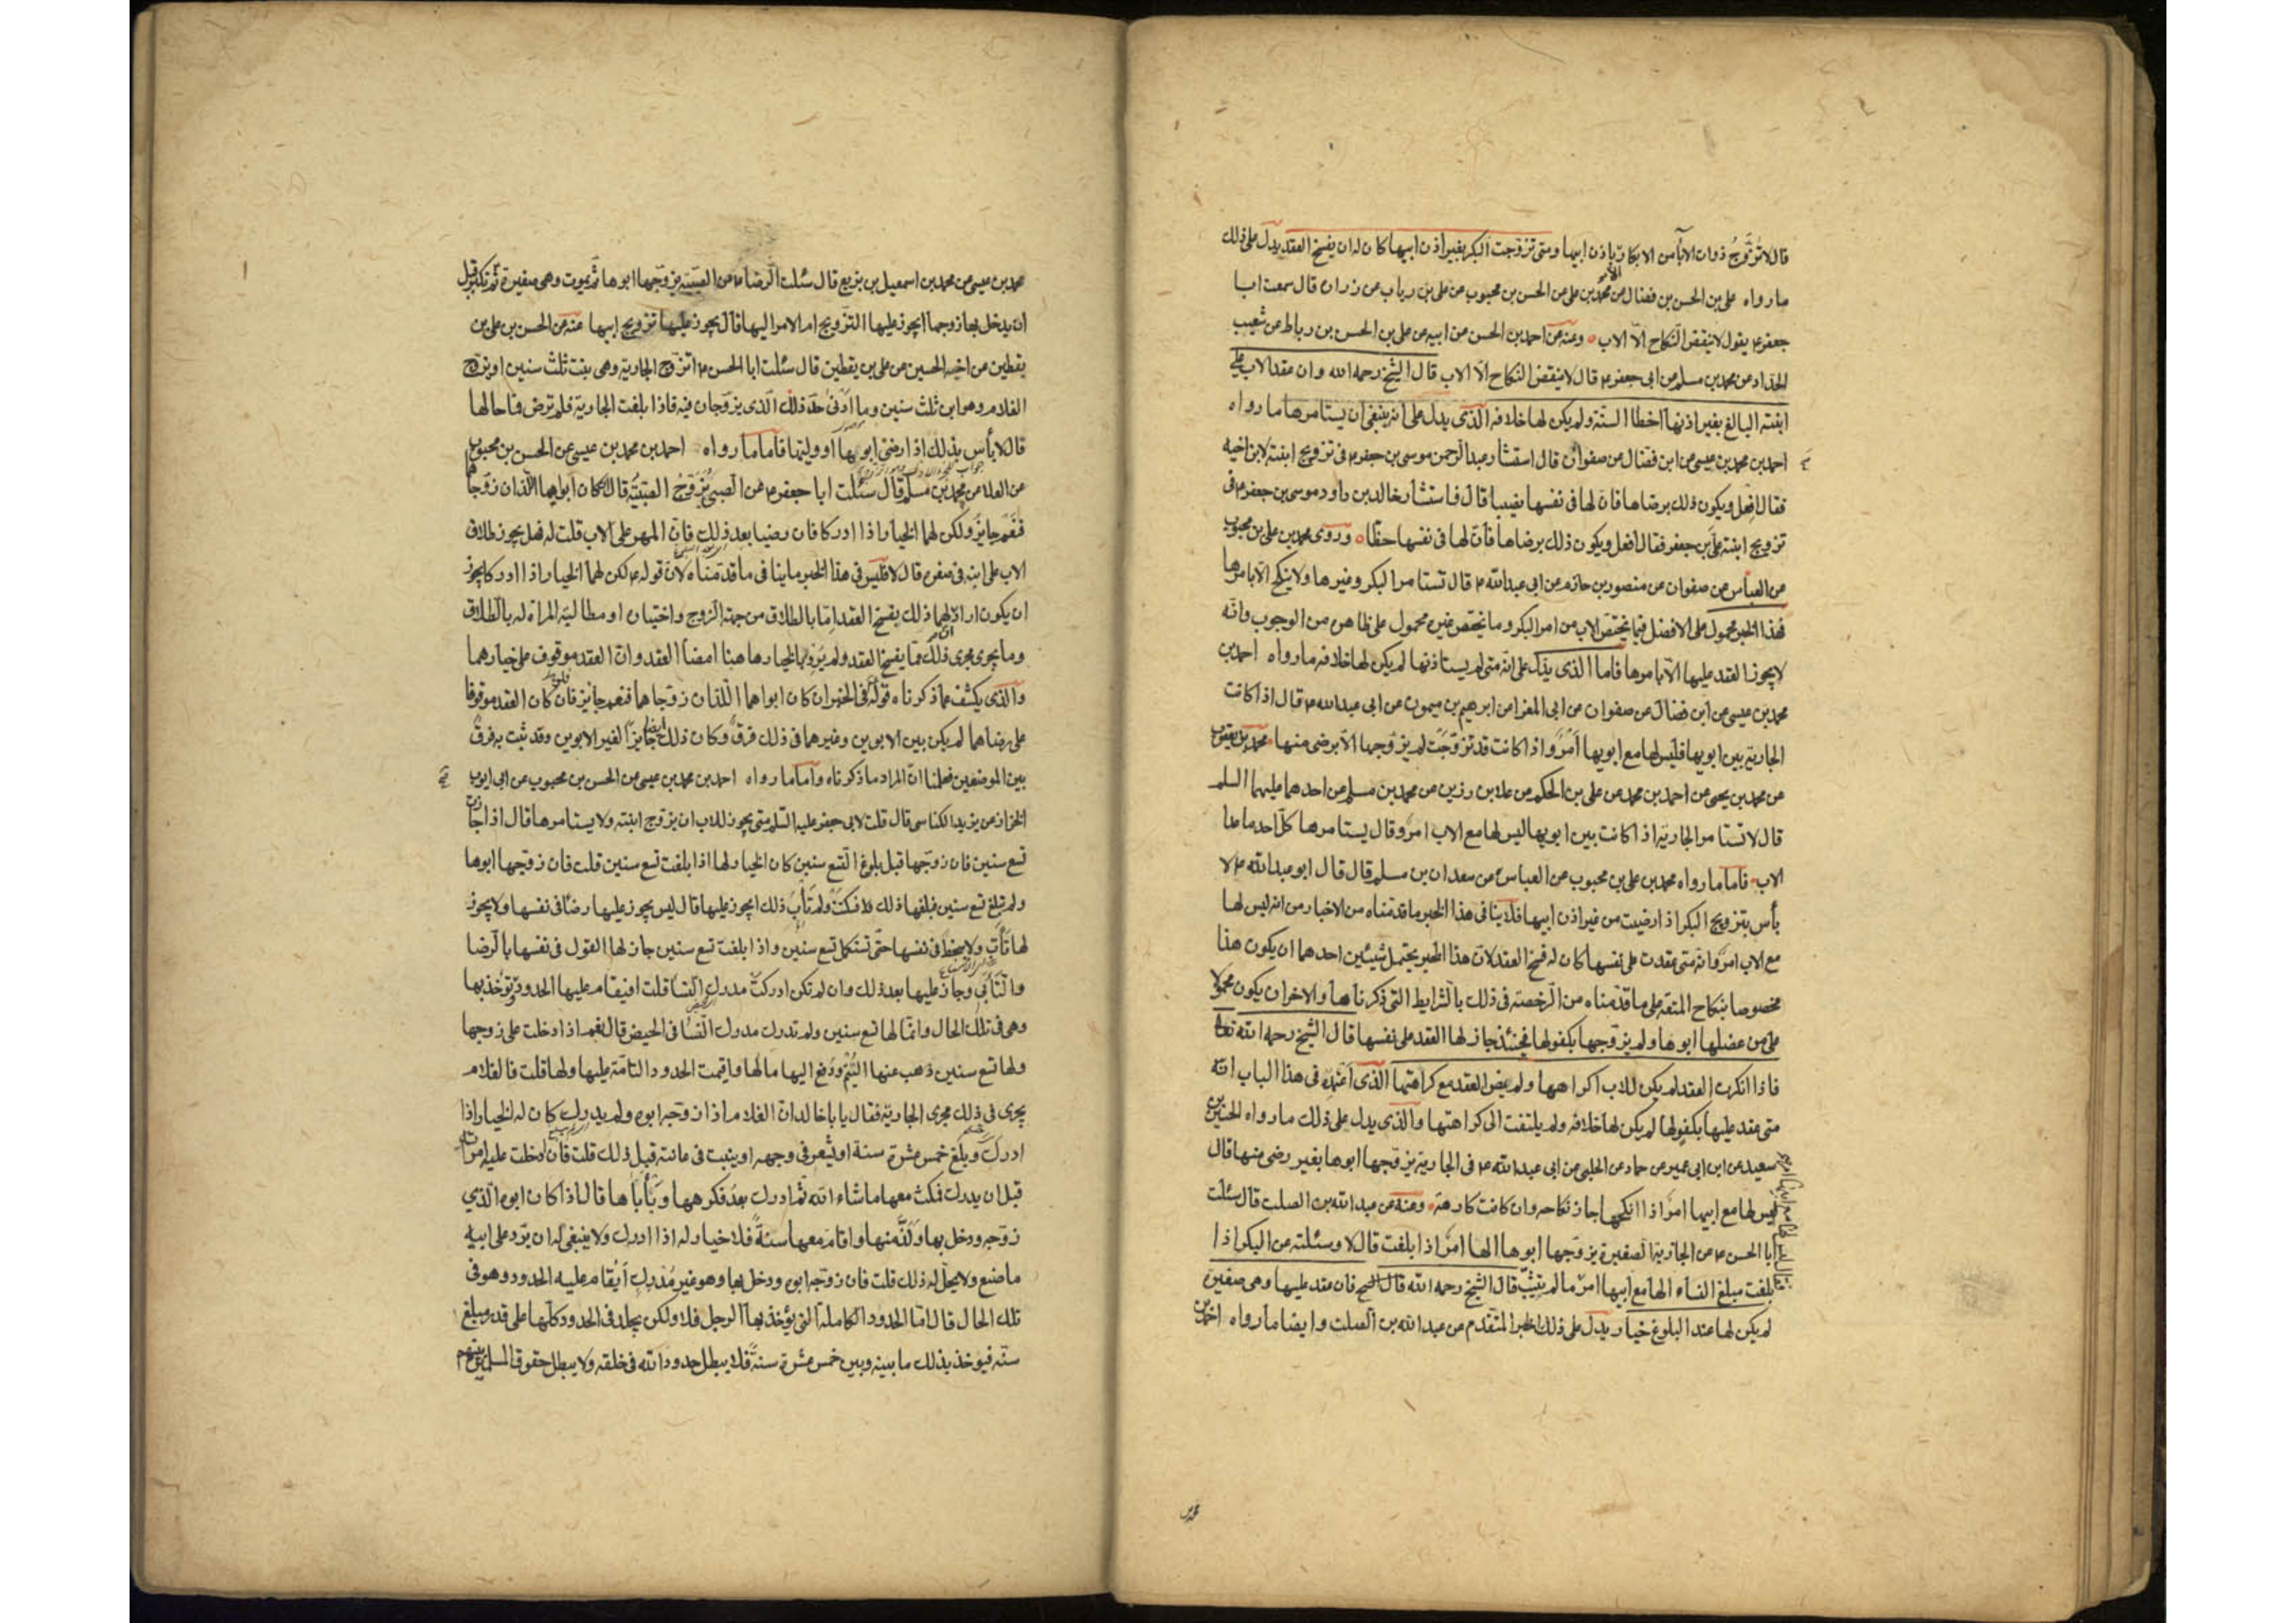 قال لا تزوج ذوات الآباء من الابكار الا باذن ابيها ومتى تزوجت البكر بغير اذن ابيها كان له ان يفسخ العقد يدل على ذلك
ما رواه علي بن الحسن بن فضال عن محمد بن علي عن الحسن بن محبوب عن علي بن رياب عن زرارة قال سمعت ابا
جعفر ع يقول لا ينقض النكاح الا الاب وعنه عن احمد بن الحسن عن ابيه عن علي بن الحسن بن رباط عن شعيب
الحداد عن محمد بن مسلم عن ابي جعفر ع قال لا ينقض النكاح الا الاب قال الشيخ رحمه الله وان عقد الاب على
ابنته البالغ بغير اذنها اخطا السنة ولم يكن لها خلافه الذي يدل على انه ينبغي ان يستامرها ما رواه
احمد بن محمد بن عيسى عن ابن فضال عن صفوان قال استشار عبد الرحمن موسى بن جعفر ع في تزويج ابنته لابن اخيه
فقال افعل ويكون ذلك برضاها فان لها في نفسها نصيبا قال فاستشار خالد بن داود موسى بن جعفر ع في
تزويج ابنته علي بن جعفر فقال افعل ويكون ذلك برضاها فان لها في نفسها حظا وروى محمد بن علي بن محبوب
عن العباس عن صفوان عن منصور بن حازم عن ابي عبد الله ع قال تستامر البكر وغيرها ولا ينكح الا بامرها
فهذا الخبر محمول على الافضل فيما يختص الاب من امر البكر وما يختص غيره محمول على ظاهره من الوجوب وانه
لا يجوز العقد عليها الا بامرها فاما الذي يدل على انه متى لم يستاذنها لم يكن لها خلافه ما رواه احمد بن
محمد بن عيسى عن ابن فضال عن صفوان عن ابي المغرا عن ابرهيم بن ميمون عن ابي عبد الله ع قال اذا كانت
الجارية بين ابويها فليس لها مع ابويها امر واذا كانت قد تزوجت لم يزوجها الا برضى منها محمد بن يعقوب
عن محمد بن يحيى عن احمد بن محمد عن علي بن الحكم عن علا بن رزين عن محمد بن مسلم عن احدهما عليهما السلم
قال لا تستامر الجارية اذا كانت بين ابويها ليس لها مع الاب امر وقال يستامرها كل احد ما عدا
الاب فاما ما رواه محمد بن علي بن محبوب عن العباس عن سعدان بن مسلم قال قال ابو عبد الله ع لا
بأس بتزويج البكر اذا رضيت من غير اذن ابيها فلا ينافي هذا الخبر ما قدمناه من الاخبار من انه ليس لها
مع الاب امر وانه متى عقدت على نفسها كان له فسخ العقد لان هذا الخبر يحتمل شيئين احدهما ان يكون هذا
مخصوصا بنكاح المتعة على ما قدمناه من الرخصة في ذلك بالشرايط التي ذكرناها والاخر ان يكون محمولا
على من عضلها ابوها ولم يزوجها بكفو لها فحينئذ جاز لها العقد على نفسها قال الشيخ رحمه الله تعا
فاذا انكرت العقد لم يكن للاب اكراهها ولم يمض العقد مع كراهتها الذي اعتمده في هذا الباب انه
متى عقد عليها بكفو لها لم يكن لها خلافه ولم يلتفت الى كراهتها والذي يدل على ذلك ما رواه الحسين بن
سعيد عن ابن ابي عمير عن حماد عن الحلبي عن ابي عبد الله ع في الجارية يزوجها ابوها بغير رضى منها قال
ليس لها مع ابيها امر اذا انكحها جاز نكاحه وان كانت كارهة وعنه عن عبد الله بن الصلت قال سئلت
ابا الحسن ع عن الجارية الصغيرة يزوجها ابوها الها امر اذا بلغت قال لا وسئلته عن البكر اذا
بلغت مبلغ النساء الها مع ابيها امر ما لم يثيب قال الشيخ رحمه الله قال الشيخ فان عقد عليها وهي صغيرة
لم يكن لها عند البلوغ خيار يدل على ذلك الخبر المتقدم عن عبد الله بن الصلت وايضا ما رواه احمد بن
محمد بن عيسى عن محمد بن اسمعيل بن بزيع قال سئلت الرضا ع عن الصبية يزوجها ابوها ثم يموت وهي صغيرة ثم تكبر قبل
ان يدخل بها زوجها ايجوز عليها التزويج ام الامر اليها قال يجوز عليها تزويج ابيها عنه عن الحسن بن علي بن
يقطين عن اخيه الحسين عن علي بن يقطين قال سئلت ابا الحسن ع اتزوج الجارية وهي بنت ثلث سنين او يزوج
الغلام وهو ابن ثلث سنين وما ادنى حد ذلك الذي يزوجان فيه فاذا بلغت الجارية فلم ترض فما حالها
قال لا بأس بذلك اذا رضى ابوها او وليها فاما ما رواه احمد بن محمد بن عيسى عن الحسن بن محبوب
عن العلا عن محمد بن مسلم قال سئلت ابا جعفر ع عن الصبي يزوج الصبية قال ان كان ابواهما اللذان زوجاهما
فنعم جايز ولكن لهما الخيار اذا ادركا فان رضيا بعد ذلك فان المهر على الاب قلت له فهل يجوز طلاق
الاب على ابنه في صغره قال لا فليس في هذا الخبر ما ينافي ما قدمناه لان قوله ع لكن لهما الخيار اذا ادركا يجوز
ان يكون اراد لهما ذلك بفسخ العقد اما بالطلاق من جهة الزوج واختياره او مطالبة المراة له بالطلاق
وما يجري مجرى ذلك مما يفسخ العقد ولم يرد بالخيار ها هنا امضا العقد وان العقد موقوف على خيارهما
والذي يكشف عما ذكرناه قوله في الخبر ان كان ابواهما اللذان زوجاهما فنعم جايز فلو كان العقد موقوفا
على رضاهما لم يكن بين الابوين وغيرهما في ذلك فرق وكان ذلك ايضا جايزا لغير الابوين وقد ثبت به فرق
بين الموضعين فعلمنا ان المراد ما ذكرناه واما ما رواه احمد بن محمد بن عيسى عن الحسن بن محبوب عن ابي ايوب
الخزاز عن يزيد الكناسي قال قلت لابي جعفر عليه السلم متى يجوز للاب ان يزوج ابنته ولا يستامرها قال اذا جازت
تسع سنين فان زوجها قبل بلوغ التسع سنين كان الخيار لها اذا بلغت تسع سنين قلت فان زوجها ابوها
ولم تبلغ تسع سنين فبلغها ذلك فسكتت ولم تأب ذلك ايجوز عليها قال ليس يجوز عليها رضا في نفسها ولا يجوز
لها تأب ولا سخط في نفسها حتى تستكمل تسع سنين واذا بلغت تسع سنين جاز لها القول في نفسها بالرضا
والتأبي وجاز عليها بعد ذلك وان لم تكن ادركت مدرك النسا قلت افيقام عليها الحدود وتؤخذ بها
وهي في تلك الحال وانما لها تسع سنين ولم تدرك مدرك النسا في الحيض قال نعم اذا دخلت على زوجها
ولها تسع سنين ذهب عنها اليتم ودفع اليها مالها واقيمت الحدود التامة عليها ولها قلت فالغلام
يجري في ذلك مجرى الجارية فقال يابا خالد ان الغلام اذا زوجه ابوه ولم يدرك كان له الخيار اذا
ادرك وبلغ خمس عشرة سنة او يشعر في وجهه او ينبت في عانته قبل ذلك قلت فان ادخلت عليه امراته
قبل ان يدرك فمكث معها ما شاء الله ثم ادرك بعد فكرهها وتأباها قال اذا كان ابوه الذي
زوجه ودخل بها ولذ منها واقام معها سنة فلا خيار له اذا ادرك ولا ينبغي له ان يرد على ابيه
ما صنع ولا يحل له ذلك قلت فان زوجه ابوه ودخل بها وهو غير مدرك أيقام عليه الحدود وهو في
تلك الحال قال اما الحدود الكاملة التي يؤخذ بها الرجل فلا ولكن يجلد في الحدود كلها على قدر مبلغ
سنه فيوخذ بذلك ما بينه وبين خمس عشرة سنة فلا يبطل حدود الله في خلقه ولا يبطل حقوق المسلمين بينهم